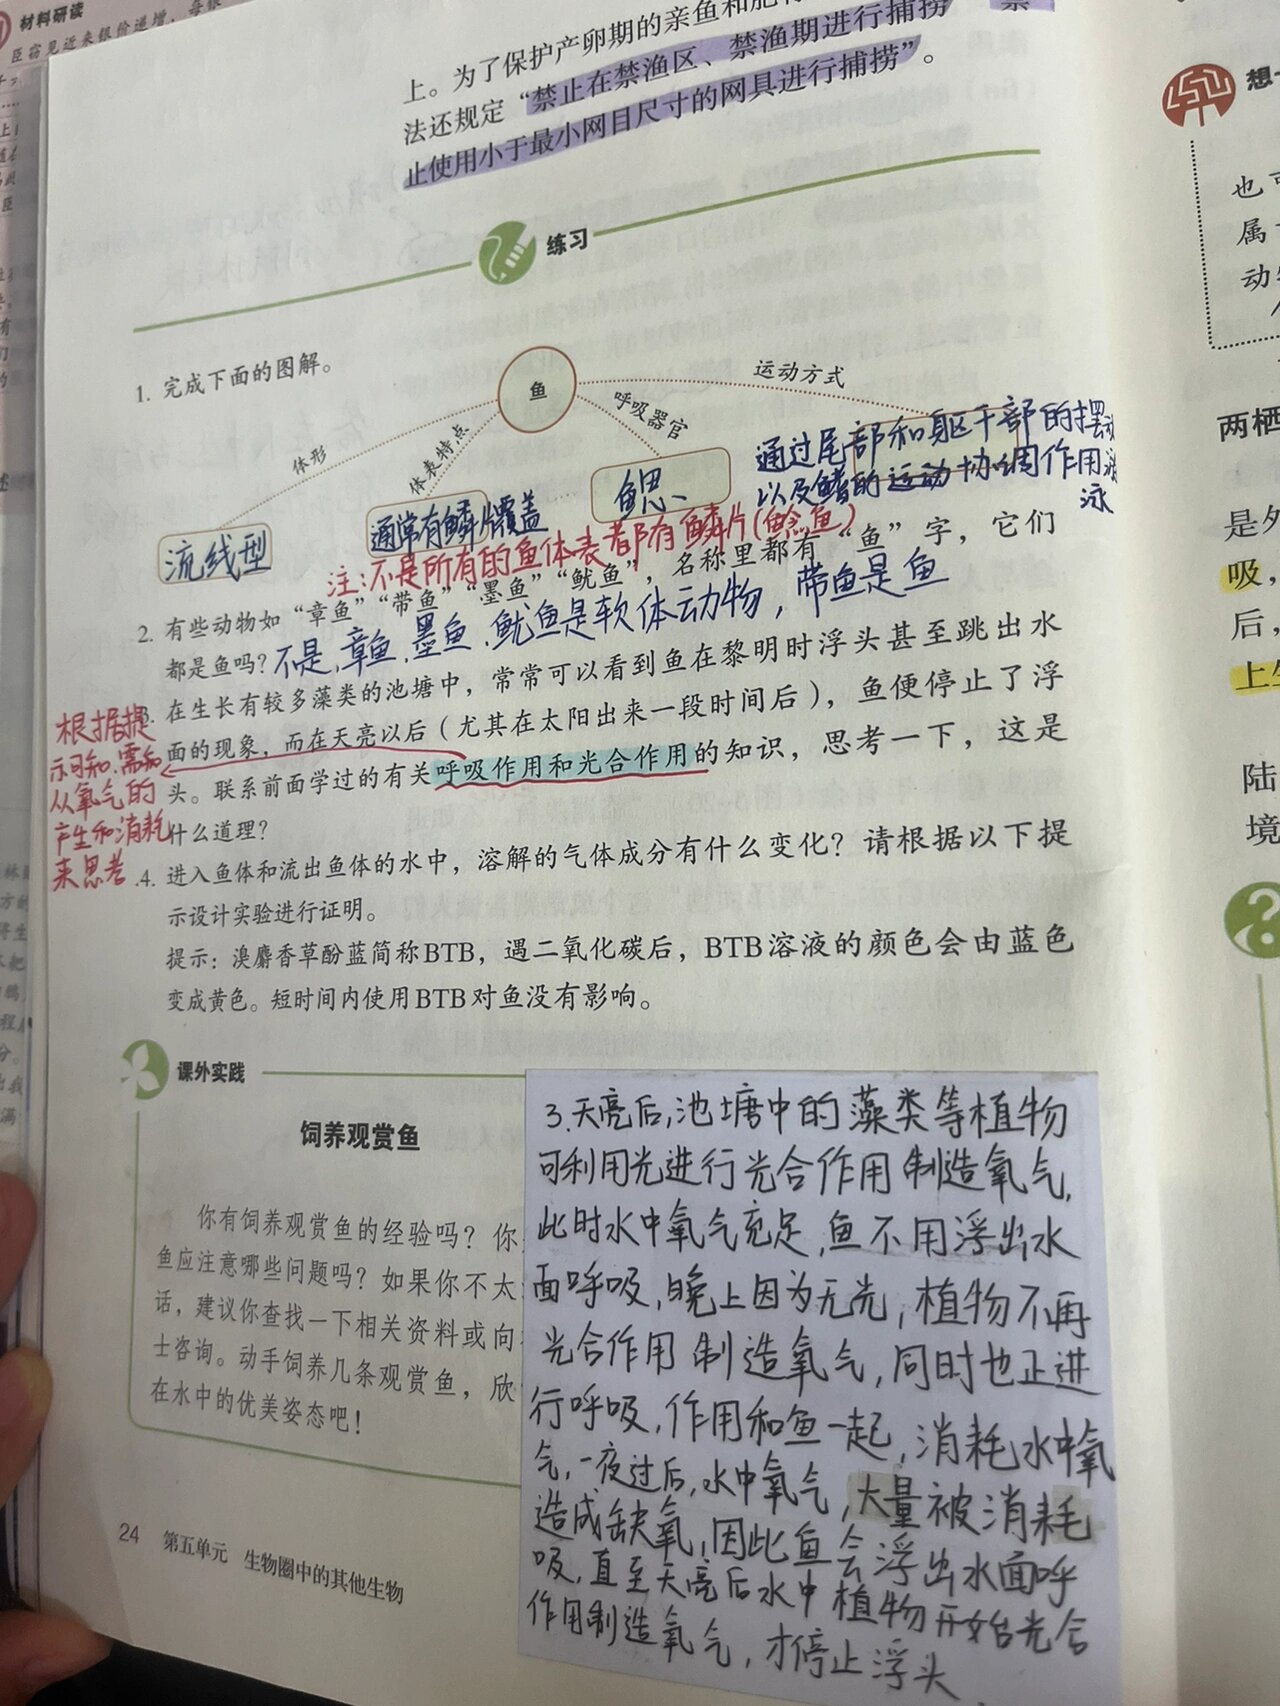 材料研读
臣窃见近来银价递增，每银
上。为了保护产卵期的亲鱼和肥
法还规定“禁止在禁渔区、禁渔期进行捕捞
止使用小于最小网目尺寸的网具进行捕捞”。
练习
1. 完成下面的图解。
鱼
体形
体表特点
呼吸器官
运动方式
流线型
通常有鳞片覆盖
鳃
通过尾部和躯干部的摆
以及鳍的运动协调作用游
泳
注:不是所有的鱼体表都有鳞片(鲶鱼)
2. 有些动物如“章鱼”“带鱼”“墨鱼”“鱿鱼”，名称里都有“鱼”字，它们
都是鱼吗？
不是、章鱼、墨鱼、鱿鱼是软体动物，带鱼是鱼
3. 在生长有较多藻类的池塘中，常常可以看到鱼在黎明时浮头甚至跳出水
面的现象，而在天亮以后（尤其在太阳出来一段时间后），鱼便停止了浮
头。联系前面学过的有关呼吸作用和光合作用的知识，思考一下，这是
什么道理？
根据提
示可知、需和
从氧气的
产生和消耗
来思考
4. 进入鱼体和流出鱼体的水中，溶解的气体成分有什么变化？请根据以下提
示设计实验进行证明。
提示：溴麝香草酚蓝简称BTB，遇二氧化碳后，BTB溶液的颜色会由蓝色
变成黄色。短时间内使用BTB对鱼没有影响。
课外实践
饲养观赏鱼
你有饲养观赏鱼的经验吗？你
鱼应注意哪些问题吗？如果你不太
话，建议你查找一下相关资料或向
士咨询。动手饲养几条观赏鱼，欣
在水中的优美姿态吧！
3.天亮后,池塘中的藻类等植物
可利用光进行光合作用制造氧气,
此时水中氧气充足,鱼不用浮出水
面呼吸,晚上因为无光,植物不再
光合作用制造氧气,同时也正进
行呼吸,作用和鱼一起,消耗水中氧
气,一夜过后,水中氧气,大量被消耗
造成缺氧,因此鱼会浮出水面呼
吸,直至天亮后水中植物开始光合
作用制造氧气,才停止浮头.
24 第五单元 生物圈中的其他生物
想一
也可
属
动物
两栖
是外
吸，
后，
上生
陆
境